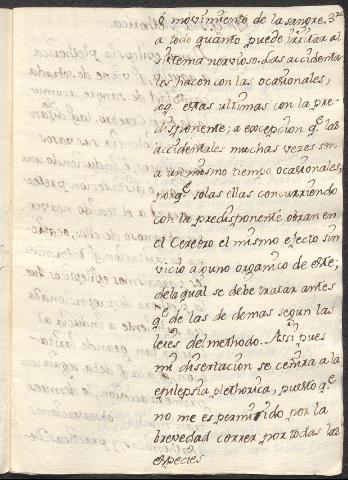 ô movimiento de la sangre. 3º
a todo quanto puede irritar al
sistema nervioso. Las accidenta-
les hacen con las ocasionales,
lo q.e estas ultimas con la pre-
disponente; a excepcion q.e las
accidentales muchas veces son
a un mismo tiempo ocasionales,
porq.e solas ellas concurriendo
con la predisponente obran en
el Cerebro el mismo efecto sin
vicio alguno organico de este;
de la qual se debe tratar antes
q.e de las de demas segun las
leies del methodo. Assi pues
mi disertacion se ceñira a la
epilepsia plethorica, puesto q.e
no me es permitido por la
brevedad correr por todas las
especies